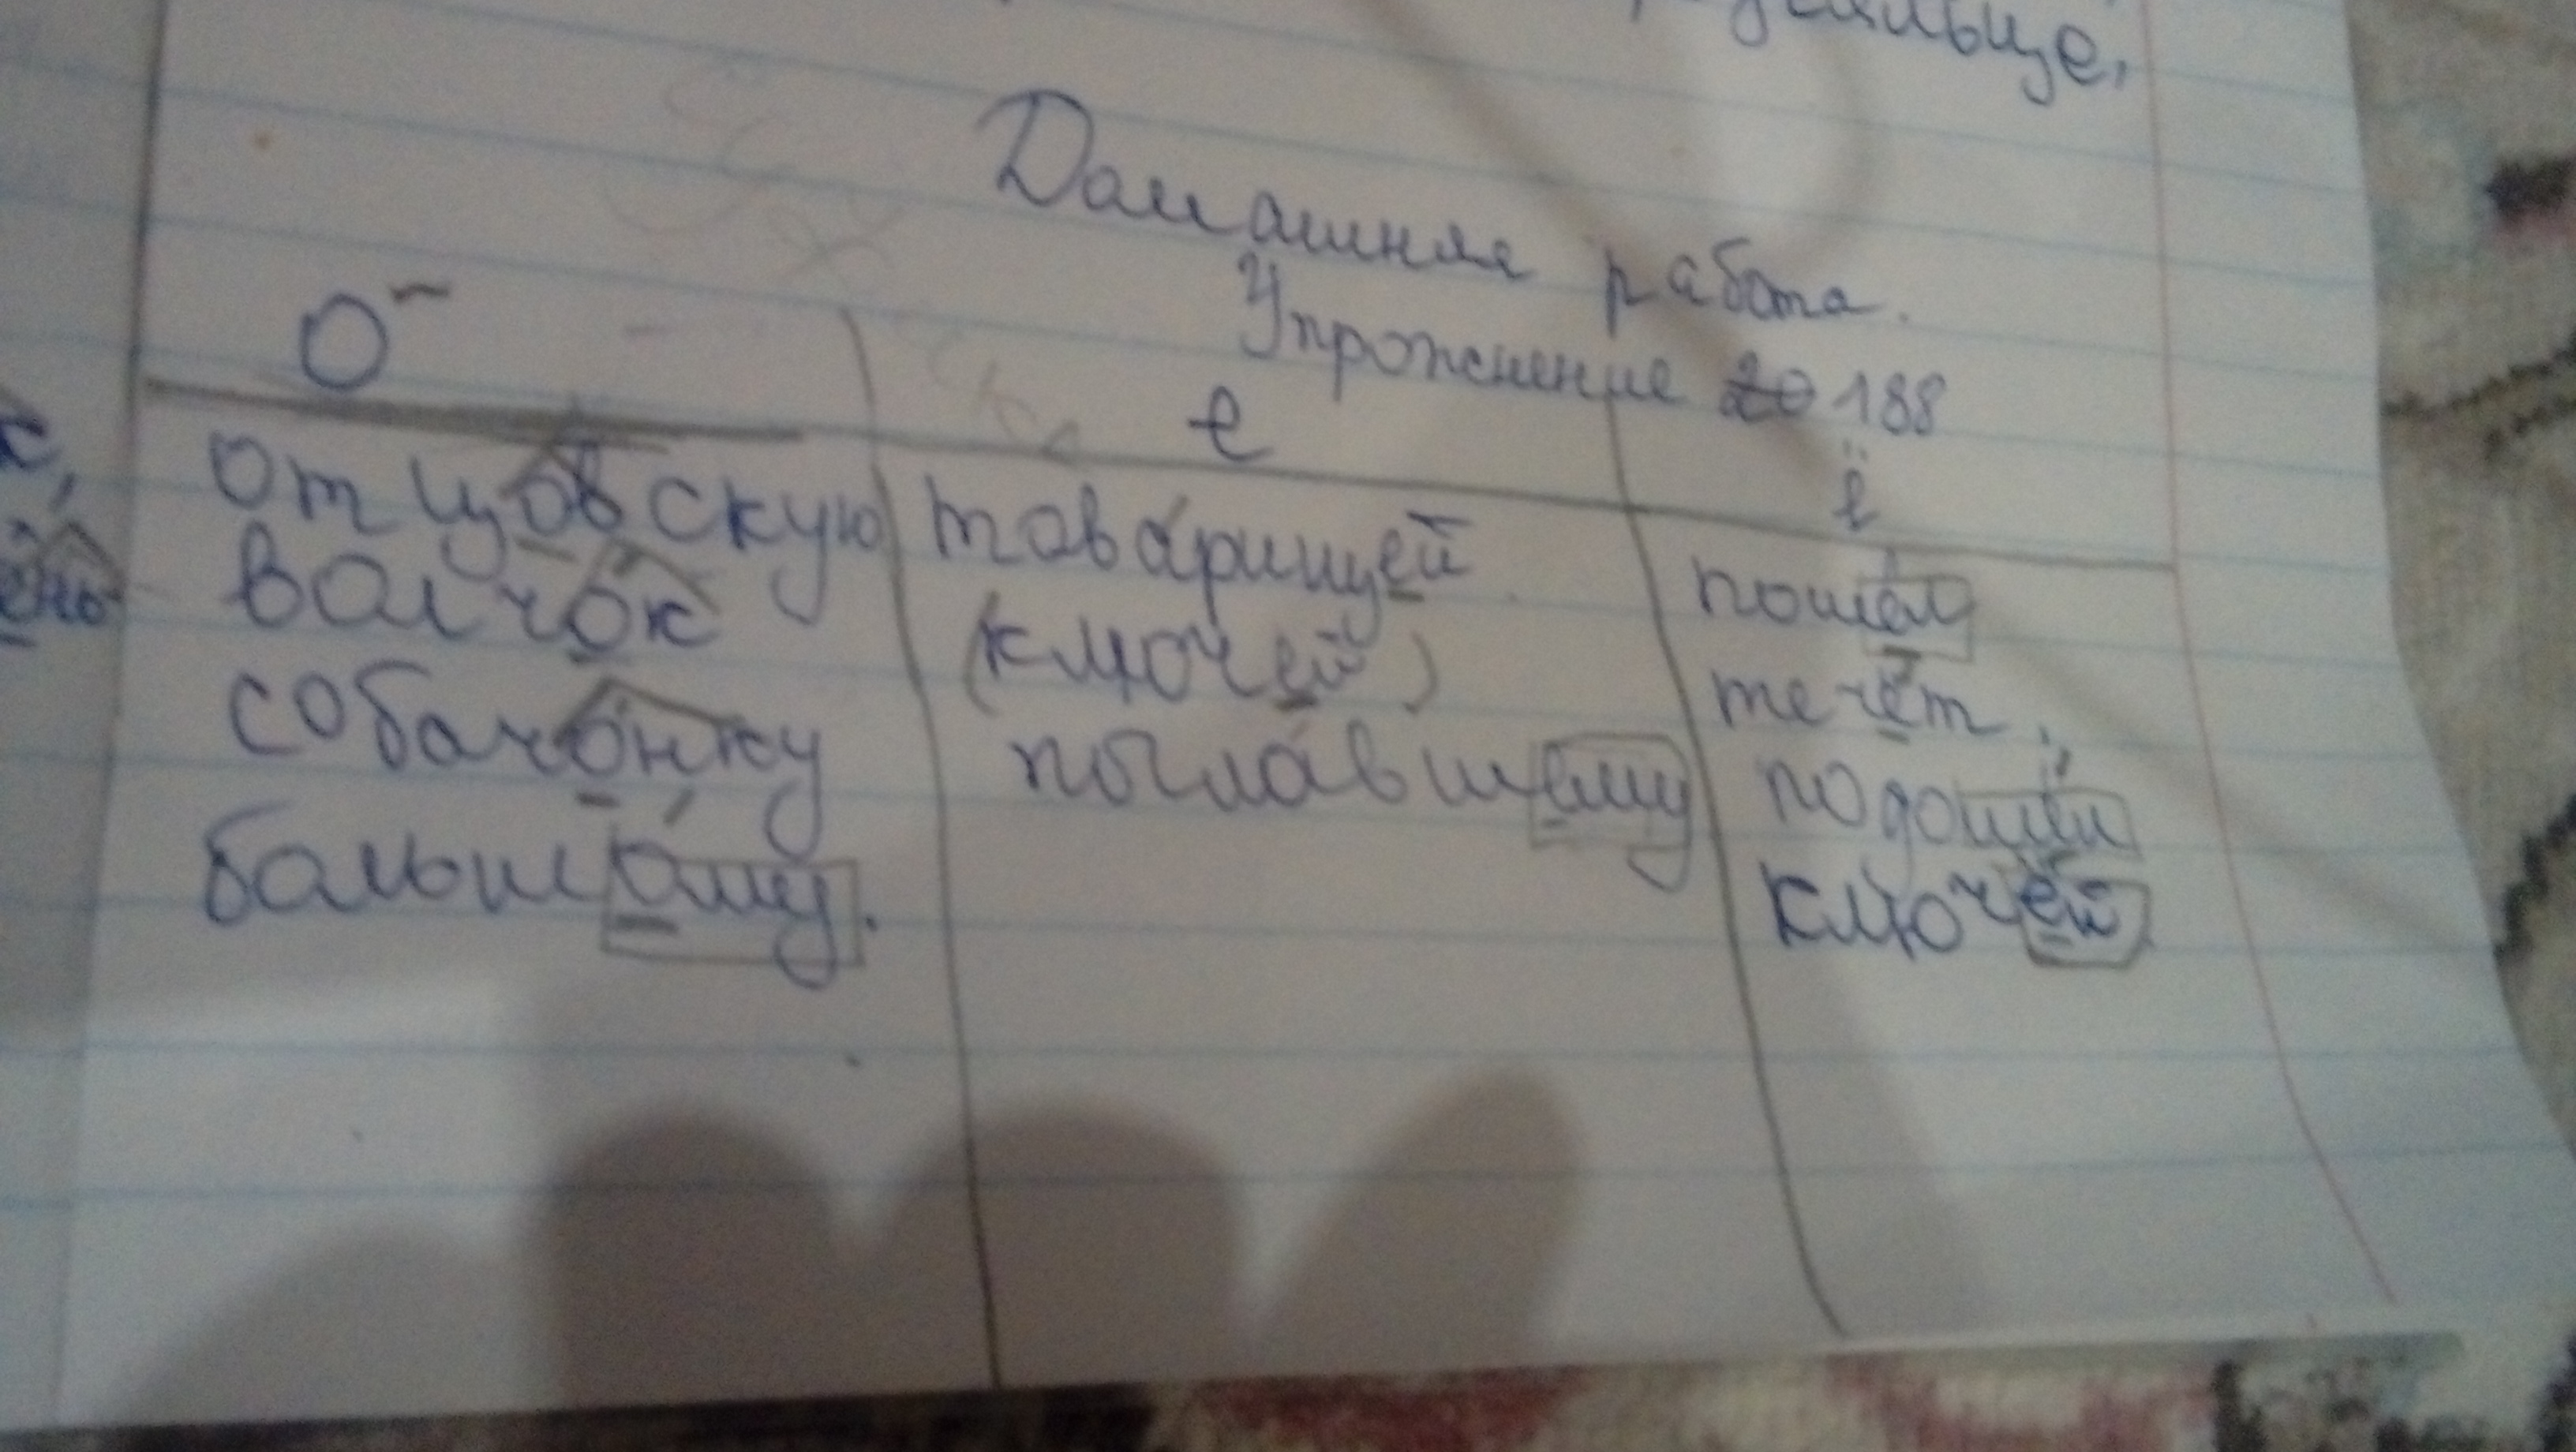 Домашняя работа.
Упрожнение 188
О е ё
отцовскую товарищей пошёл
волчок (ключей) течёт,
собачонку поглавшему подошёл
большому. ключей